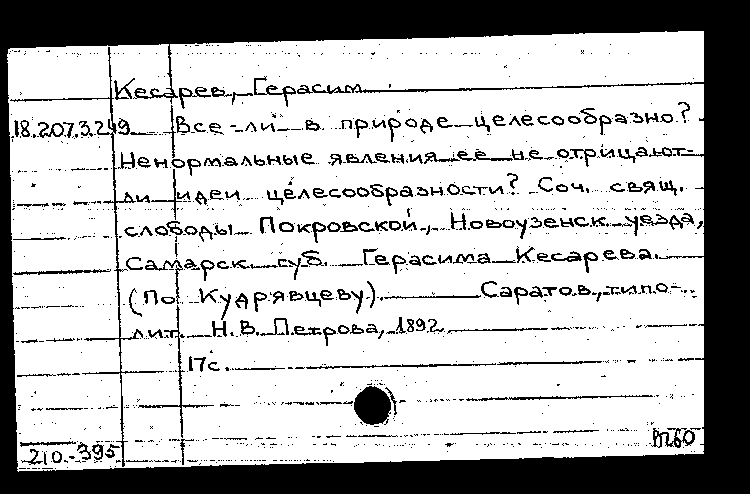 Кесарев, Герасим.
18.207.3.249 Все-ли в природе целесообразно?
Ненормальные явления ее не отрицают-
ли идеи целесообразности? Соч. свящ.
слободы Покровской, Новоузенск уезда,
Самарск. губ. Герасима Кесарева.
(По Кудрявцеву). Саратов, типо-
лит. Н.В. Петрова, 1892.
17с.
210.-395